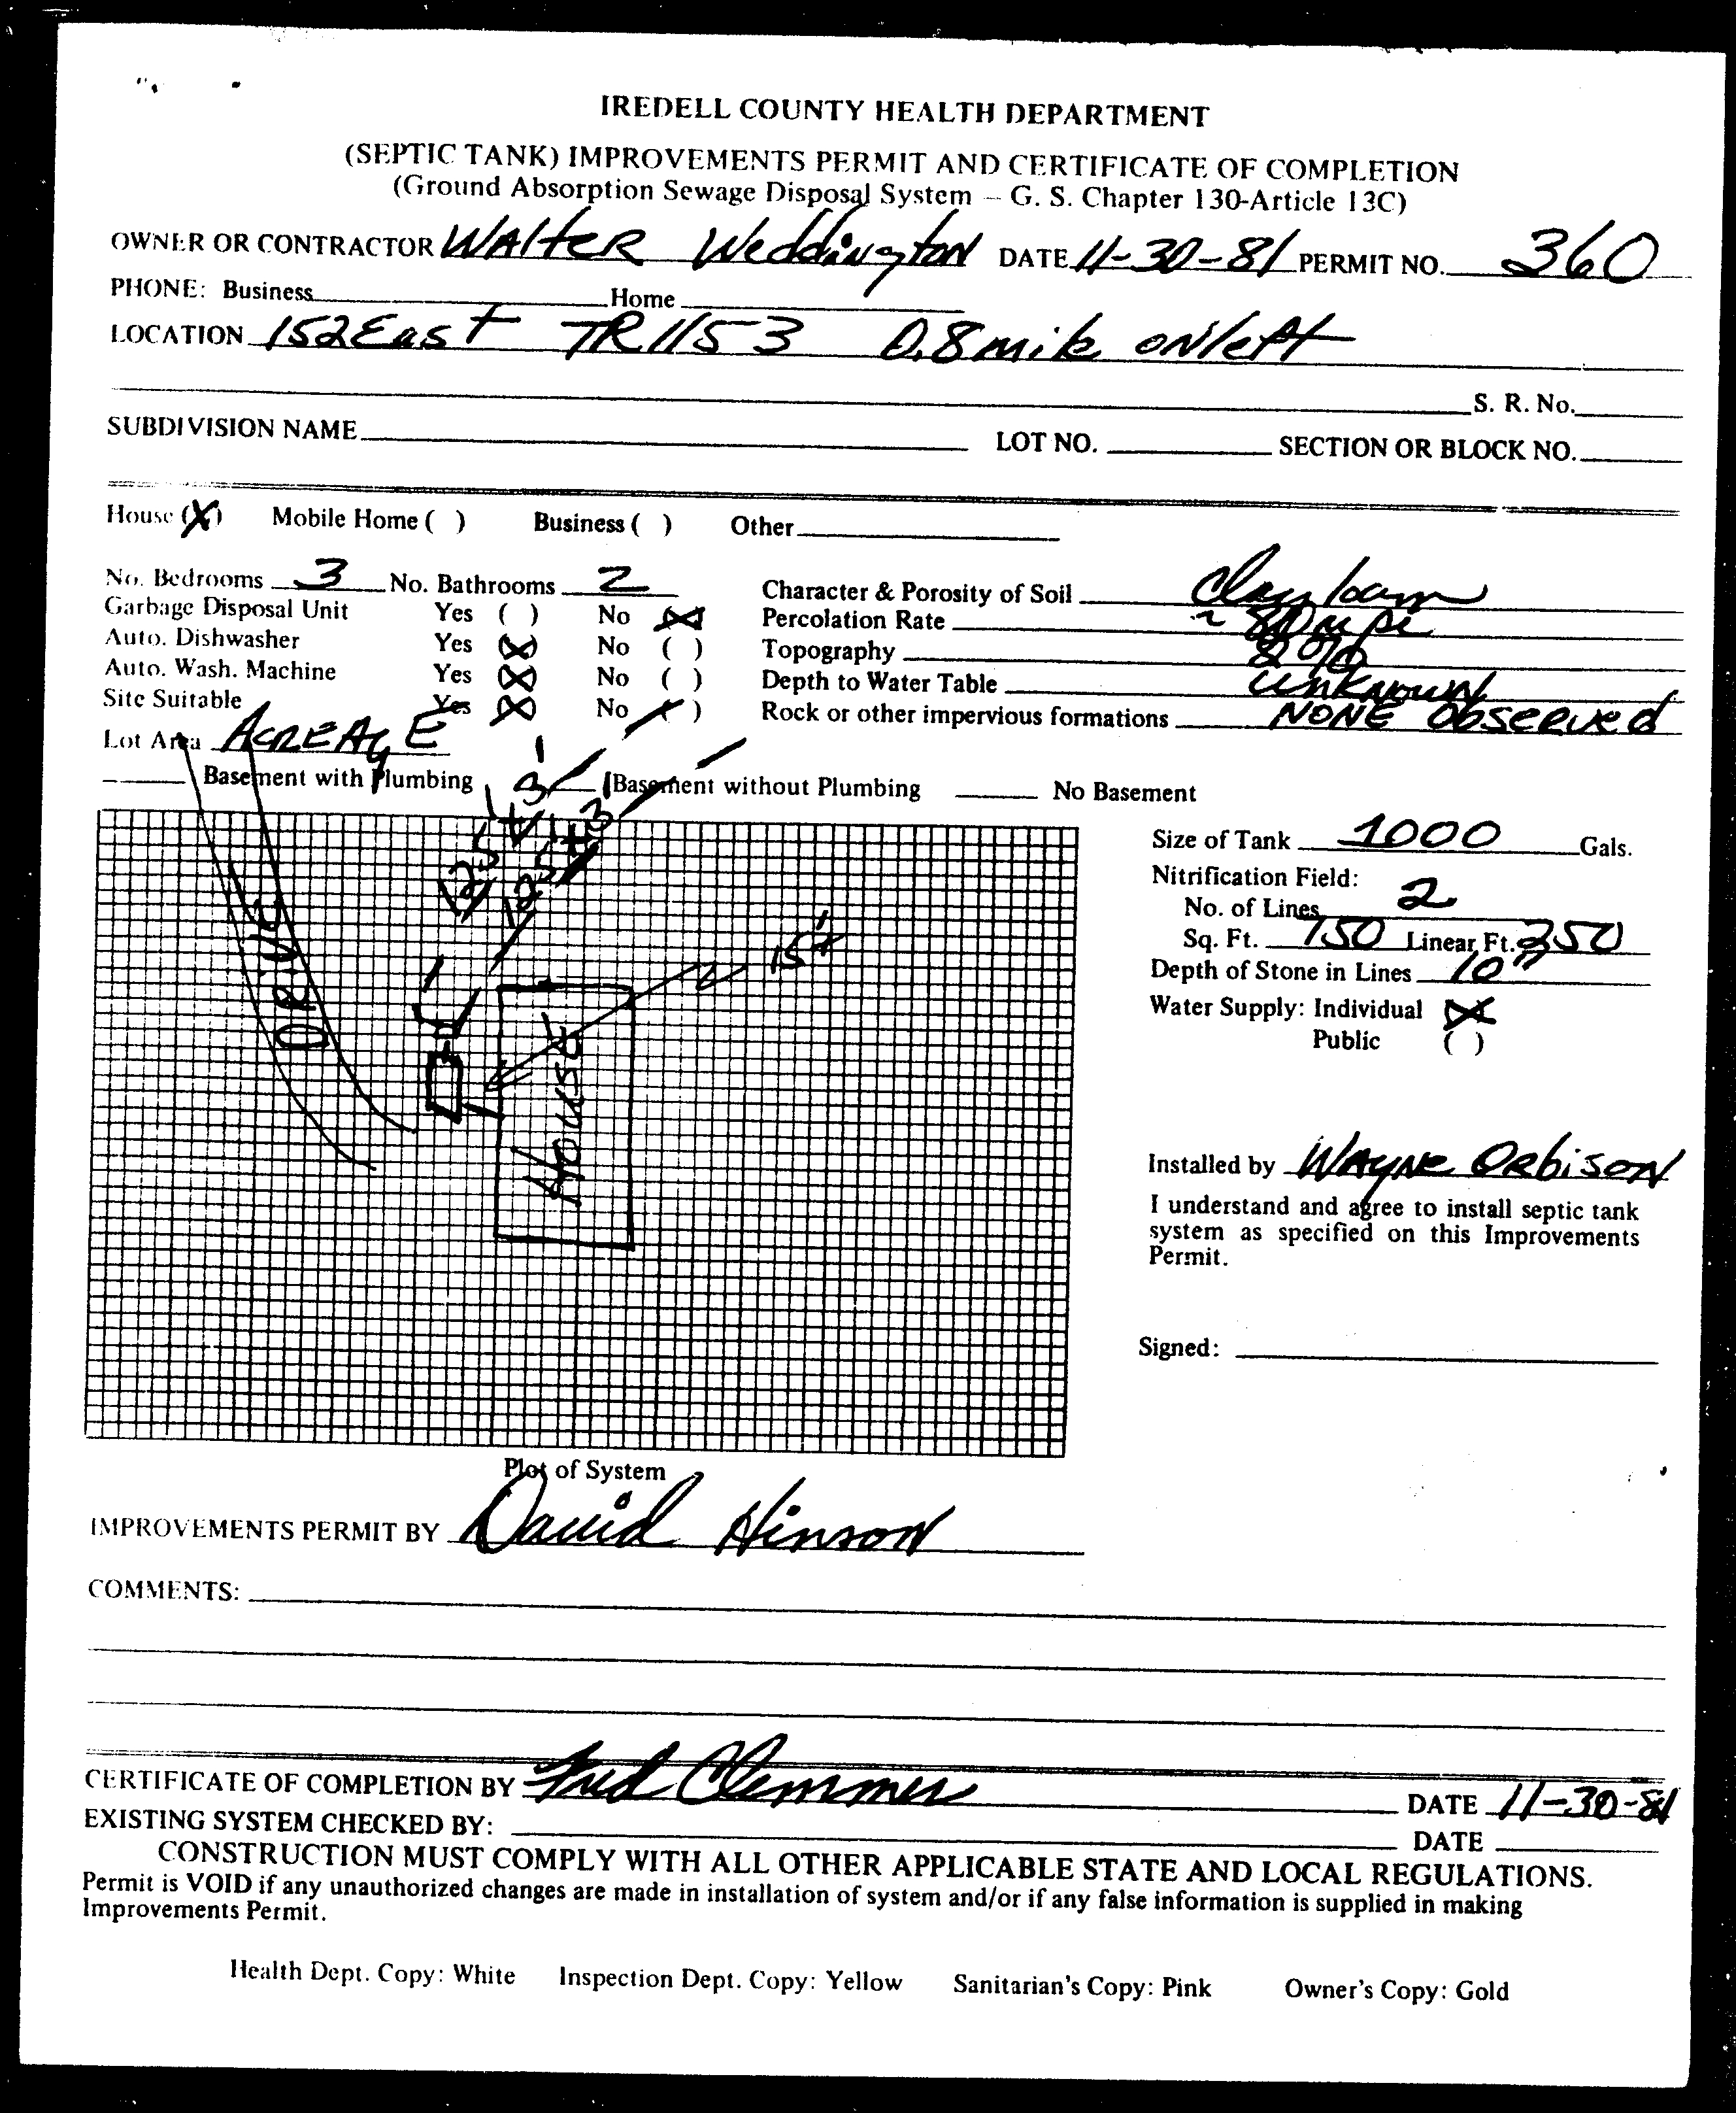 IREDELL COUNTY HEALTH DEPARTMENT
(SEPTIC TANK) IMPROVEMENTS PERMIT AND CERTIFICATE OF COMPLETION
(Ground Absorption Sewage Disposal System – G. S. Chapter 130-Article 13C)
OWNER OR CONTRACTOR WAlteR Weddington DATE 11-30-81 PERMIT NO. 360
PHONE: Business Home
LOCATION 152 East TR 1153 0.8 mile on left
S. R. No.
SUBDIVISION NAME LOT NO. SECTION OR BLOCK NO.
House (X) Mobile Home ( ) Business ( ) Other
No. Bedrooms 3 No. Bathrooms 2 Character & Porosity of Soil Clay loam
Garbage Disposal Unit Yes ( ) No (X) Percolation Rate ~ 80 mpi
Auto. Dishwasher Yes (X) No ( ) Topography 2%
Auto. Wash. Machine Yes (X) No ( ) Depth to Water Table unknown
Site Suitable Yes (X) No ( ) Rock or other impervious formations NONE Observed
Lot Area ACREAgE
Basement with Plumbing Basement without Plumbing No Basement
125' x 3'
125' x 3'
15'+
DRIVE
House
Size of Tank 1000 Gals.
Nitrification Field:
No. of Lines 2
Sq. Ft. 750 Linear Ft. 250
Depth of Stone in Lines 10"
Water Supply: Individual (X)
Public ( )
Installed by WAYNE ORbiSON
I understand and agree to install septic tank
system as specified on this Improvements
Permit.
Signed:
Plot of System
IMPROVEMENTS PERMIT BY David Hinson
COMMENTS:
CERTIFICATE OF COMPLETION BY Fred Clemmer DATE 11-30-81
EXISTING SYSTEM CHECKED BY: DATE
CONSTRUCTION MUST COMPLY WITH ALL OTHER APPLICABLE STATE AND LOCAL REGULATIONS.
Permit is VOID if any unauthorized changes are made in installation of system and/or if any false information is supplied in making
Improvements Permit.
Health Dept. Copy: White Inspection Dept. Copy: Yellow Sanitarian's Copy: Pink Owner's Copy: Gold